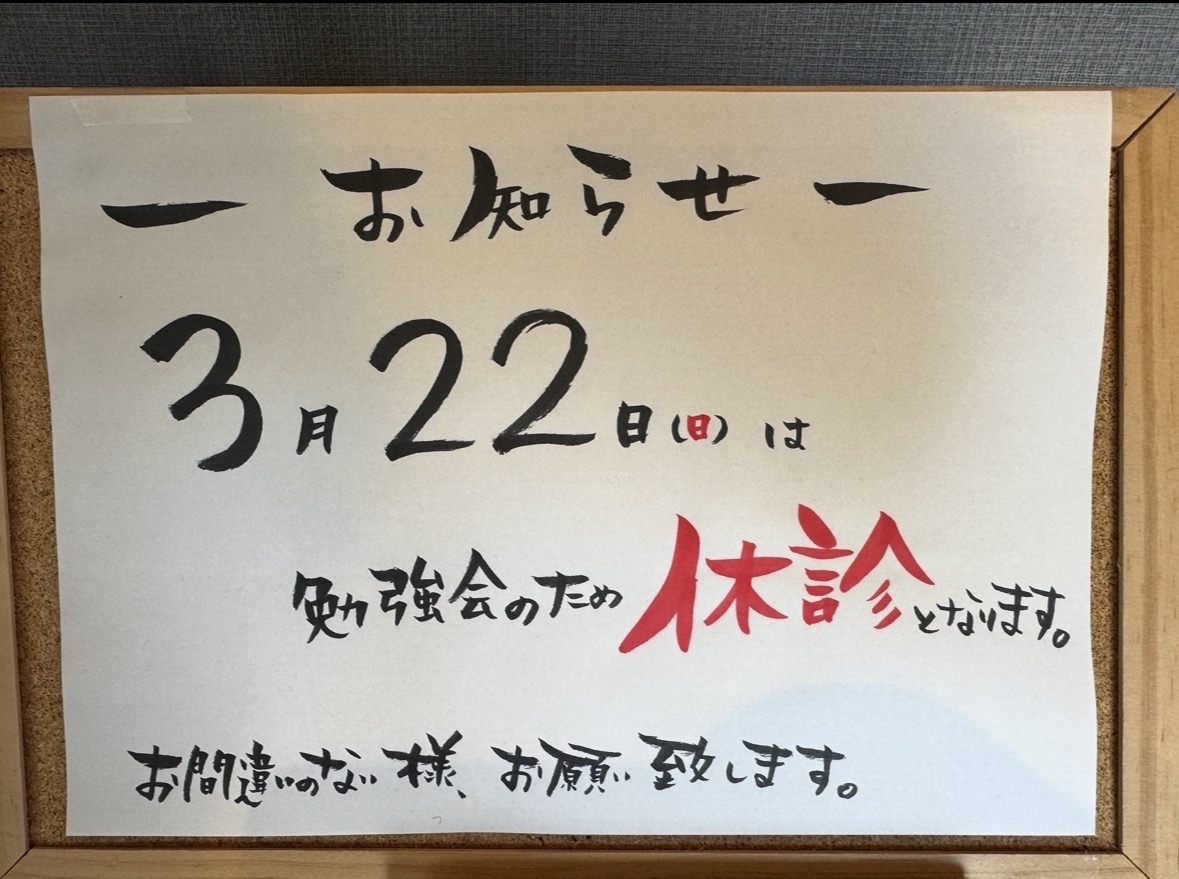 ー お知らせ ー
3月22日(日)は
勉強会のため休診となります。
お間違いのない様、お願い致します。